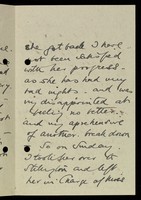 she got back I have
not been satisfied
with her progress.
as she has had very
bad nights. and was
very disappointed at
feeling no better.
and very apprehensive
of another break down
So on Sunday.
I took her over to
and left
her in charge of